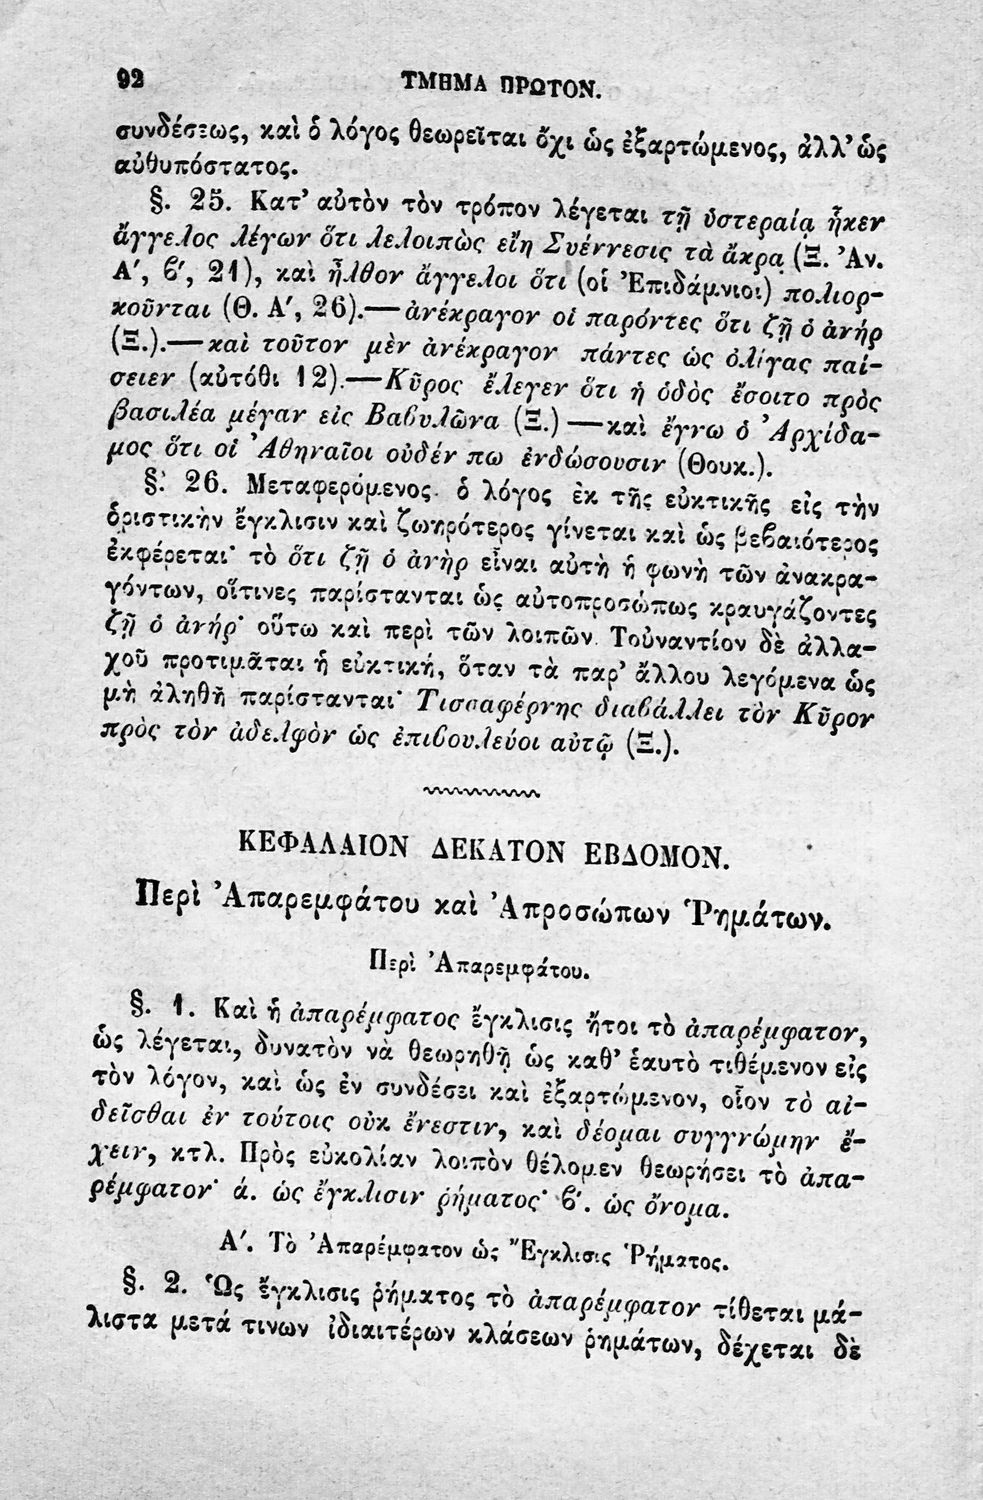 92 ΤΜΗΜΑ ΠΡΩΤΟΝ.
συνδέσεως, καὶ ὁ λόγος θεωρεῖται ὄχι ὡς ἐξαρτώμενος, ἀλλ’ ὡς
αὐθυπόστατος.
§. 25. Κατ’ αὐτὸν τὸν τρόπον λέγεται τῇ ὑστεραίᾳ ἧκεν
ἄγγελος λέγων ὅτι λελοιπὼς εἴη Συέννεσις τὰ ἄκρα (Ξ. Ἀν.
Α′, ϐ′, 21), καὶ ἦλθον ἄγγελοι ὅτι (οἱ Ἐπιδάμνιοι) πολιορ-
κοῦνται (Θ. Α′, 26).—ἀνέκραγον οἱ παρόντες ὅτι ζῇ ὁ ἀνήρ
(Ξ.).—καὶ τοῦτον μὲν ἀνέκραγον πάντες ὡς ὀλίγας παί-
σειεν (αὐτόθι 12).—Κῦρος ἔλεγεν ὅτι ἡ ὁδὸς ἔσοιτο πρὸς
βασιλέα μέγαν εἰς Βαϐυλῶνα (Ξ.)—καὶ ἔγνω ὁ Ἀρχίδα-
μος ὅτι οἱ Ἀθηναῖοι οὐδέν πω ἐνδώσουσιν (Θουκ.).
§. 26. Μεταφερόμενος ὁ λόγος ἐκ τῆς εὐκτικῆς εἰς τὴν
ὁριστικὴν ἔγκλισιν καὶ ζωηρότερος γίνεται καὶ ὡς βεϐαιότερος
ἐκφέρεται· τὸ ὅτι ζῇ ὁ ἀνὴρ εἶναι αὐτὴ ἡ φωνὴ τῶν ἀνακρα-
γόντων, οἵτινες παρίστανται ὡς αὐτοπροσώπως κραυγάζοντες
ζῇ ὁ ἀνήρ· οὕτω καὶ περὶ τῶν λοιπῶν. Τοὐναντίον δὲ ἀλλα-
χοῦ προτιμᾶται ἡ εὐκτική, ὅταν τὰ παρ’ ἄλλου λεγόμενα ὡς
μὴ ἀληθῆ παρίστανται· Τισσαφέρνης διαϐάλλει τὸν Κῦρον
πρὸς τὸν ἀδελφὸν ὡς ἐπιϐουλεύοι αὐτῷ (Ξ.).
ΚΕΦΑΛΑΙΟΝ ΔΕΚΑΤΟΝ ΕΒΔΟΜΟΝ.
Περὶ Ἀπαρεμφάτου καὶ Ἀπροσώπων Ῥημάτων.
Περὶ Ἀπαρεμφάτου.
§. 1. Καὶ ἡ ἀπαρέμφατος ἔγκλισις ἤτοι τὸ ἀπαρέμφατον,
ὡς λέγεται, δυνατὸν νὰ θεωρηθῇ ὡς καθ’ ἑαυτὸ τιθέμενον εἰς
τὸν λόγον, καὶ ὡς ἐν συνδέσει καὶ ἐξαρτώμενον, οἷον τὸ αἰ-
δεῖσθαι ἐν τούτοις οὐκ ἔνεστιν, καὶ δέομαι συγγνώμην ἔ-
χειν, κτλ. Πρὸς εὐκολίαν λοιπὸν θέλομεν θεωρήσει τὸ ἀπα-
ρέμφατον· ά. ὡς ἔγκλισιν ῥήματος· ϐ′. ὡς ὄνομα.
Α′. Τὸ Ἀπαρέμφατον ὡς Ἔγκλισις Ῥήματος.
§. 2. Ὡς ἔγκλισις ῥήματος τὸ ἀπαρέμφατον τίθεται μά-
λιστα μετά τινων ἰδιαιτέρων κλάσεων ῥημάτων, δέχεται δὲ